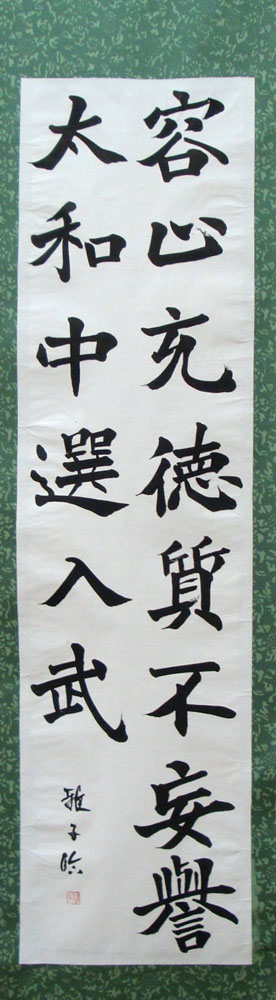 容心充德質不妄譽
太和中選入武
雅子臨